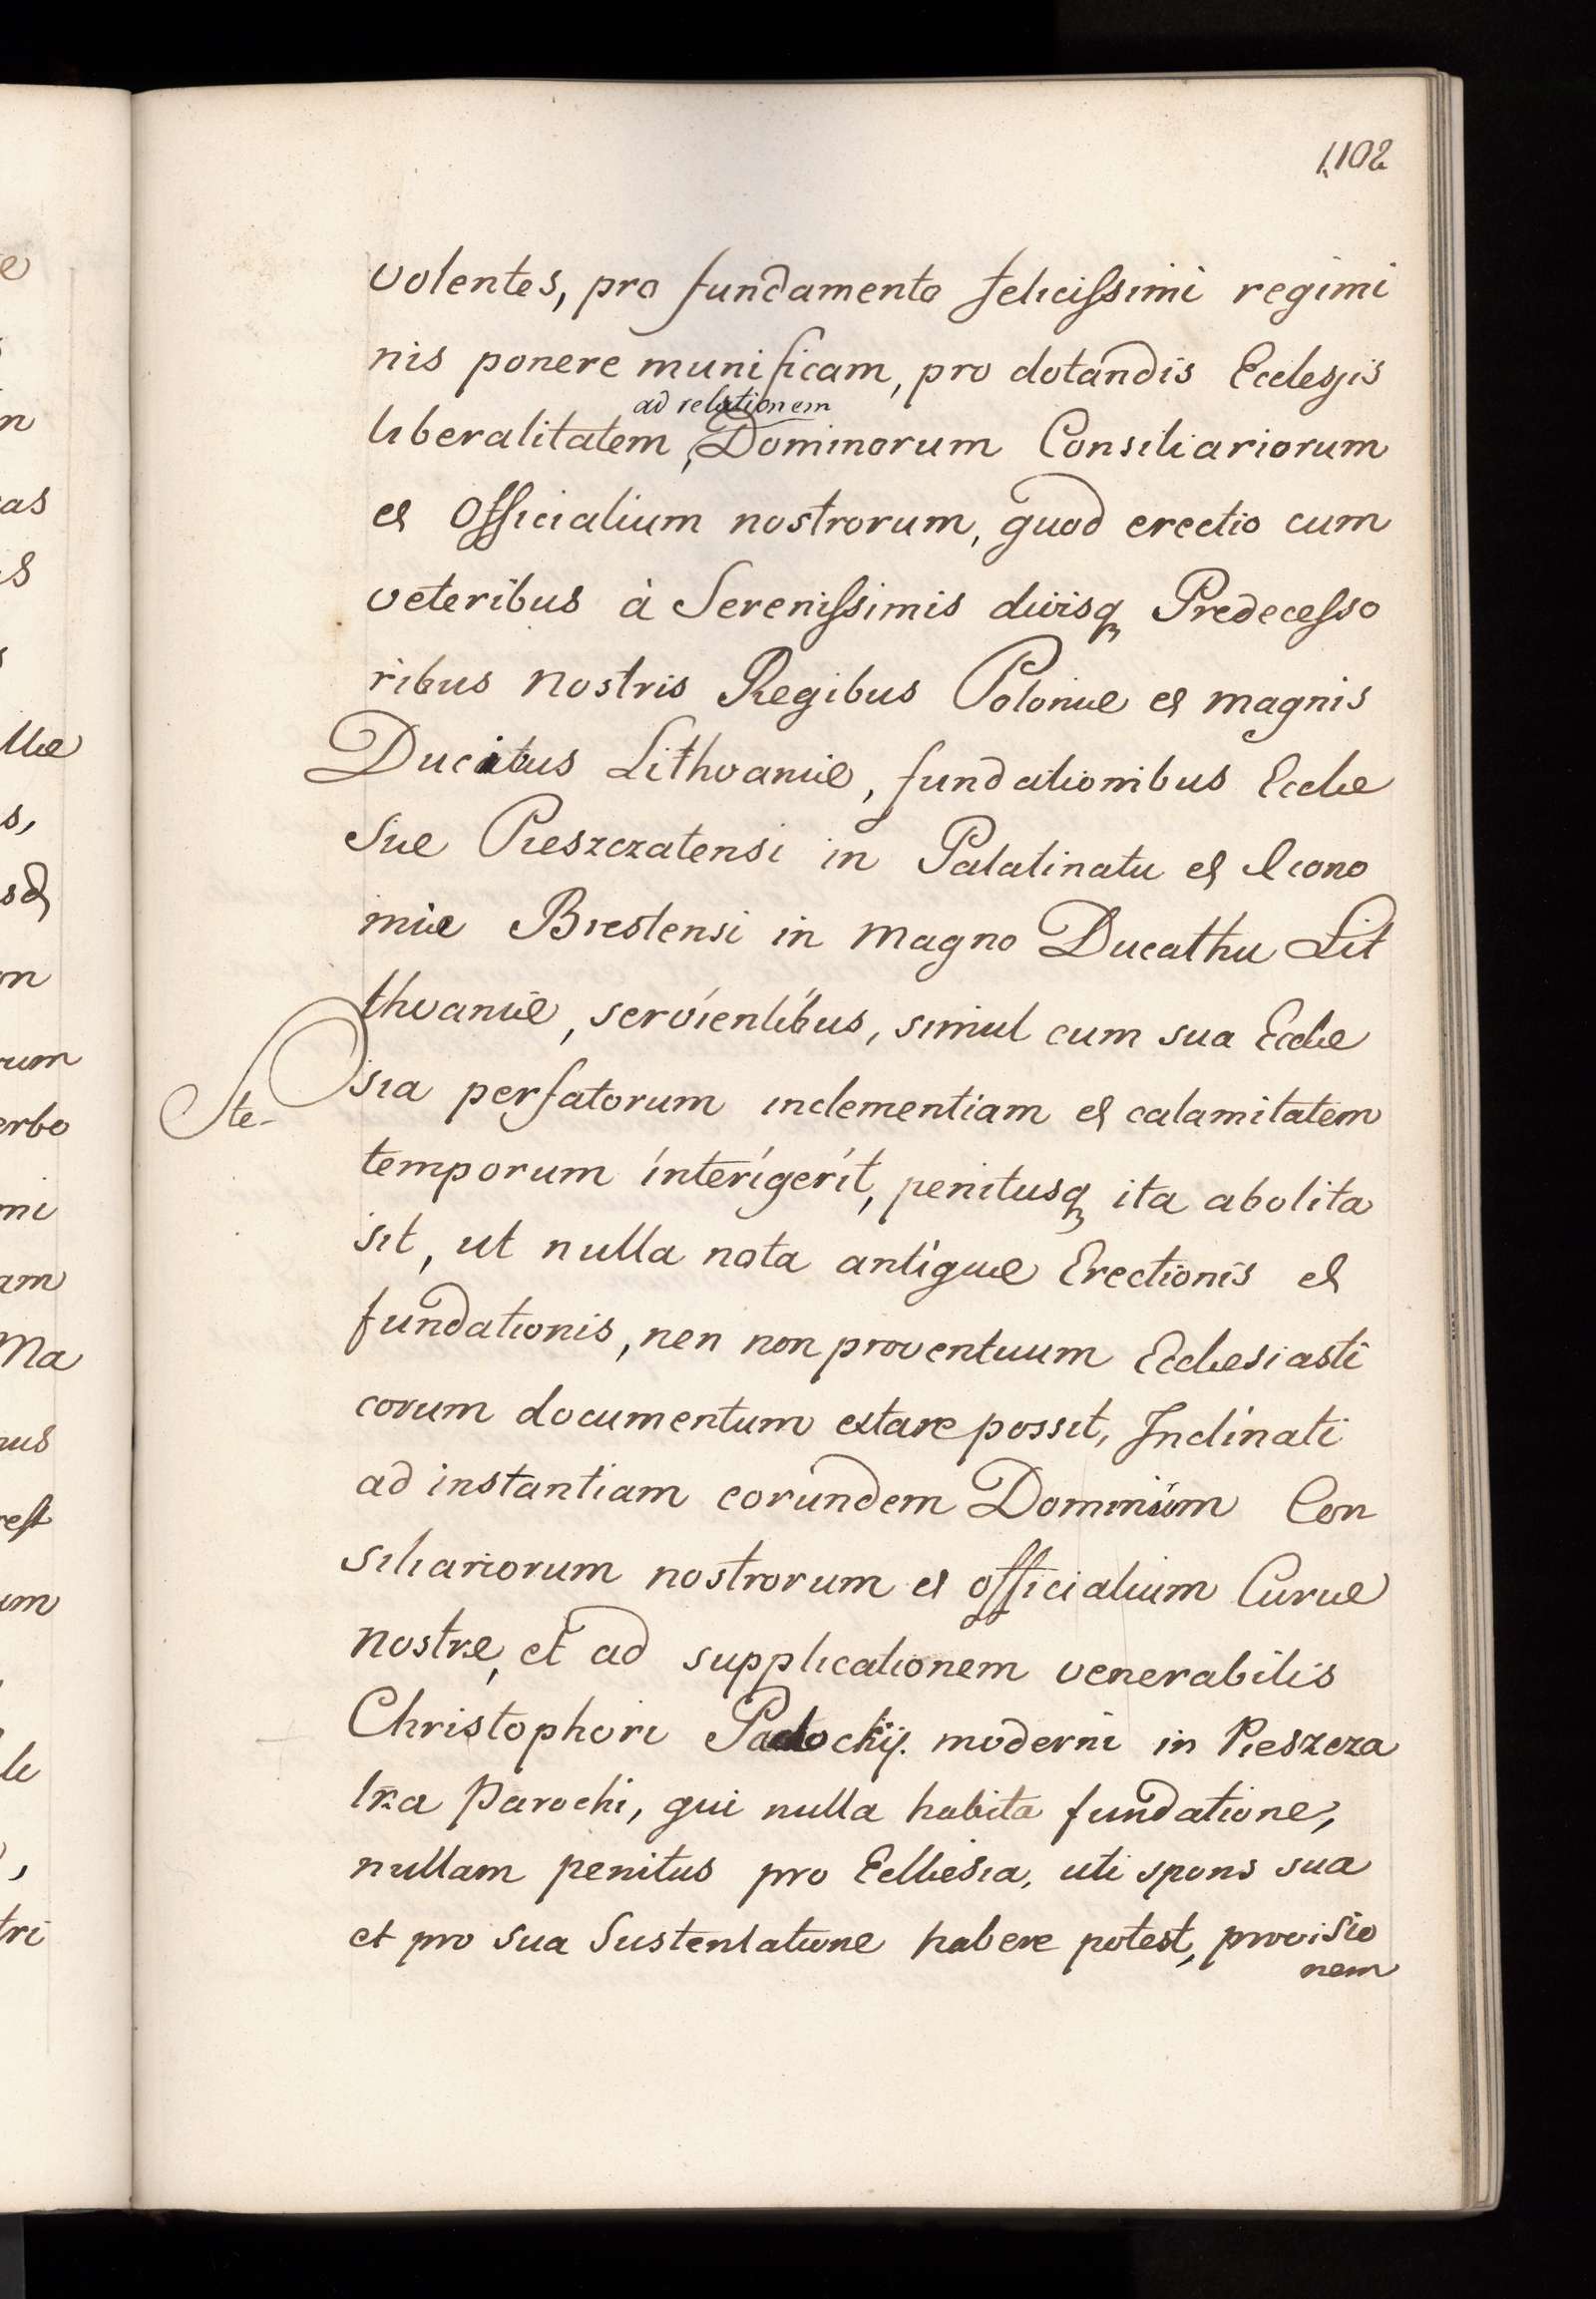 1102
volentes, pro fundamento felicissimi regimi
nis ponere munificam, pro dotandis Ecclesjis
ad relationem
liberalitatem, Dominorum Consiliariorum
et Officialium nostrorum, quod erectio cum
veteribus à Serenissimis divisq Predecesso
ribus nostris Regibus Poloniæ et magnis
Ducibus Lithvaniæ, fundationibus Eccle
siæ Pieszczatensi in Palatinatu et Econo
miæ Brestensi in magno Ducathu Lit
thvaniæ, servientibus, simul cum sua Eccle
Ste-
sia perfatorum inclementiam et calamitatem
temporum interigerit, penitusq ita abolita
sit, ut nulla nota antiquæ Erectionis et
fundationis, nen non proventuum Ecclesiasti
corum documentum extare possit, Inclinati
ad instantiam eorundem Dominum Con
siliariorum nostrorum et officialium Curiæ
nostræ, et ad supplicationem venerabilis
Christophori Padockij. moderni in Pieszcza
tka Parochi, qui nulla habita fundatione,
nullam penitus pro Ecllesia, uti spons sua
et pro sua Sustentatione habere potest, provisio
nem